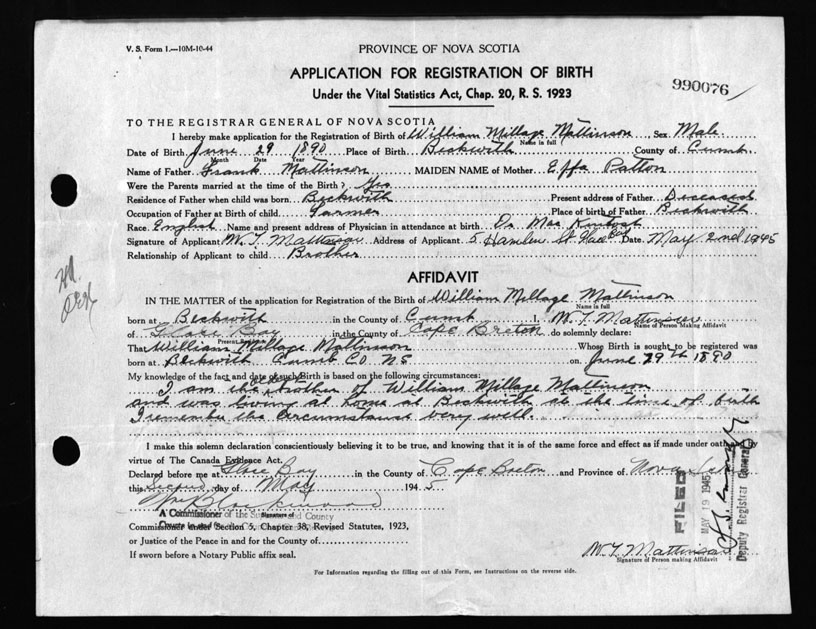 V. S. Form 1.—10M-10-44
PROVINCE OF NOVA SCOTIA
APPLICATION FOR REGISTRATION OF BIRTH
Under the Vital Statistics Act, Chap. 20, R. S. 1923
990076
TO THE REGISTRAR GENERAL OF NOVA SCOTIA
I hereby make application for the Registration of Birth of William Millage Mattinson Sex Male
Name in full
Date of Birth June 29 1890 Place of Birth Beckwith County of Cumb.
Month Date Year
Name of Father Frank Mattinson MAIDEN NAME of Mother Effa Patton
Were the Parents married at the time of the Birth? Yes
Residence of Father when child was born Beckwith Present address of Father Deceased
Occupation of Father at Birth of child Farmer Place of birth of Father Beckwith
Race English Name and present address of Physician in attendance at birth Dr Mac Kintosh
Signature of Applicant W. T. Mattinson Address of Applicant 5 St. Date May 2nd 1945
Relationship of Applicant to child Brother
AFFIDAVIT
IN THE MATTER of the application for Registration of the Birth of William Millage Mattinson
Name in full
born at Beckwith in the County of Cumb I, W. T. Mattinson
Name of Person Making Affidavit
of Glace Bay in the County of Cape Breton do solemnly declare:
That William Millage Mattinson Whose Birth is sought to be registered was
born at Beckwith Cumb Co. N S on June 29th 1890
My knowledge of the fact and date of such Birth is based on the following circumstances:
I am the older brother of William Millage Mattinson
and was living at home at Beckwith at the time of birth
I remember the circumstance very well.
I make this solemn declaration conscientiously believing it to be true, and knowing that it is of the same force and effect as if made under oath and by
virtue of The Canada Evidence Act.
Declared before me at Glace Bay in the County of Cape Breton and Province of Nova Scotia
this Second day of May 1945
A Commissioner of the County
Signature of
Commissioner under Section 5, Chapter 38, Revised Statutes, 1923,
or Justice of the Peace in and for the County of
If sworn before a Notary Public affix seal.
W. T. Mattinson
Signature of Person making Affidavit
FILED
MAY 19 1945
Deputy Registrar General
For Information regarding the filling out of this Form, see Instructions on the reverse side.